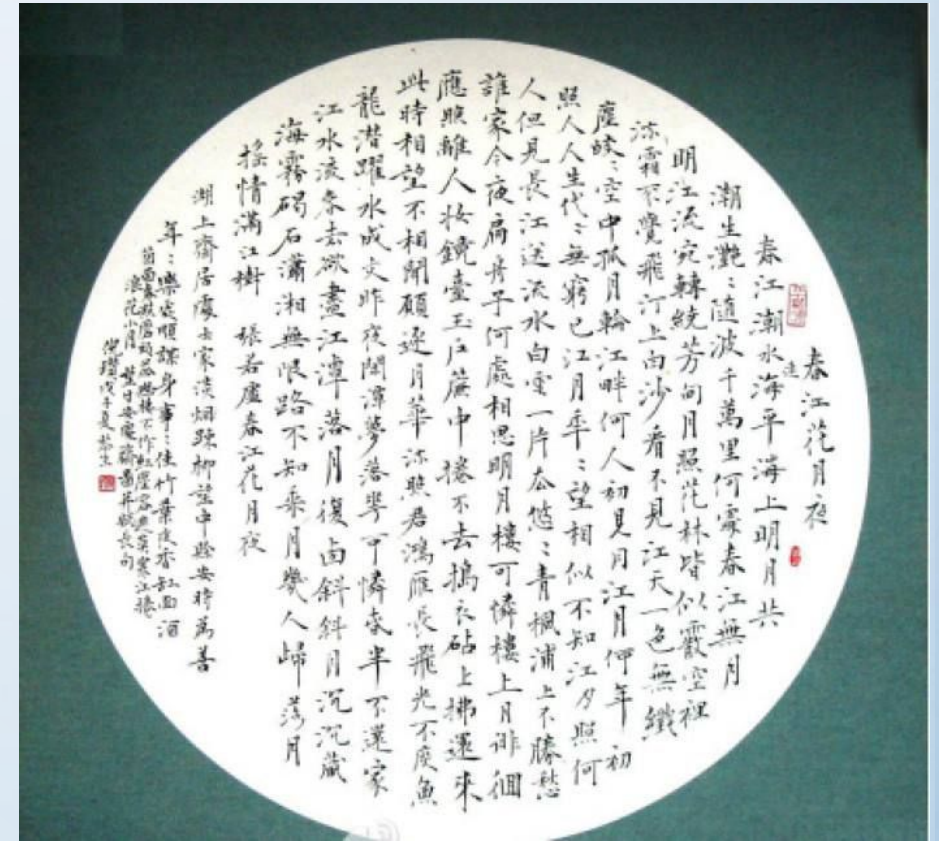 春江花月夜
春江潮水海平海上明月共
潮生灧:隨波千萬里何處春江無月
明江流宛轉繞芳甸月照花林皆似霰空裡
流霜不覺飛汀上白沙看不見江天一色無纖
塵皎:空中孤月輪江畔何人初見月江月何年初
照人人生代:無窮已江月年:望相似不知江月照何
人但見長江送流水白雲一片去悠:青楓浦上不勝愁
誰家今夜扁舟子何處相思明月樓可憐樓上月徘徊
應照離人妝鏡臺玉戶簾中捲不去搗衣砧上拂還來
此時相望不相聞願逐月華流照君鴻雁長飛光不度魚
龍潛躍水成文昨夜閒潭夢落花可憐春半不還家
江水流春去欲盡江潭落月復西斜斜月沉沉藏
海霧碣石瀟湘無限路不知乘月幾人歸落月
搖情滿江樹 張若虛春江花月夜
湖上齋居處士家淡烟疎柳望中賒安時為善
年:樂處順謀身事:佳竹葉夜香缸面酒
菊苗春
浪花小月
倪瓚戊子夏